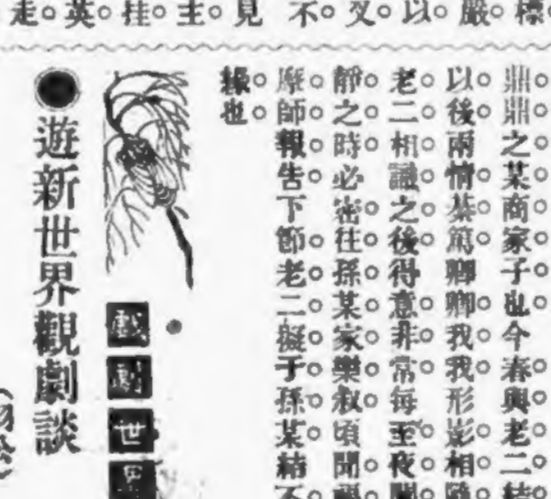 標嚴以叉不
見主挂英走
鼎鼎之某商家子也今春與老二結
以後兩情綦篤卿卿我我形影相隨
老二相識之後得意非常每至夜闌
靜之時必密往孫某家樂敘頃聞
摩師報告下節老二擬于孫某結不
緣也
戲劇世界
●遊新世界觀劇談